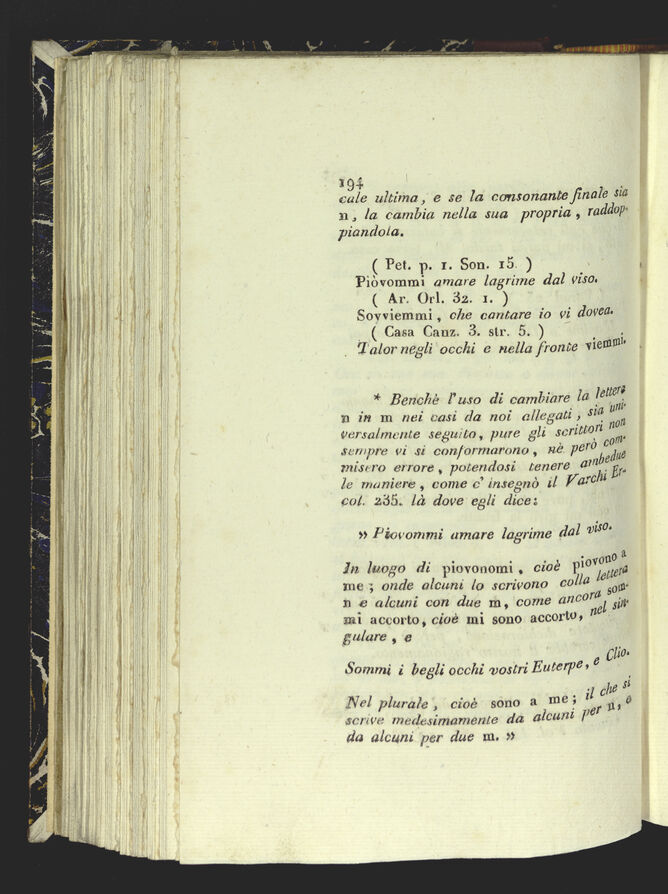 194
cale ultima, e se la consonante finale sia
n, la cambia nella sua propria, raddop-
piandola.
( Pet. p. 1. Son. 15. )
Piòvommi amare lagrime dal viso.
( Ar. Orl. 32. 1. )
Sovviemmi, che cantare io vi dovea.
( Casa Canz. 3. str. 5. )
Talor negli occhi e nella fronte viemmi.
* Benchè l'uso di cambiare la lettera
n in m nei casi da noi allegati, sia uni-
versalmente seguito, pure gli scrittori non
sempre vi si conformarono, nè però com-
misero errore, potendosi tenere ambedue
le maniere, come c'insegnò il Varchi Er-
col. 235. là dove egli dice:
» Piovommi amare lagrime dal viso.
In luogo di piovonomi, cioè piovono a
me; onde alcuni lo scrivono colla lettera
n e alcuni con due m, come ancora som-
mi accorto, cioè mi sono accorto, nel sin-
gulare, e
Sommi i begli occhi vostri Euterpe, e Clio.
Nel plurale, cioè sono a me; il che si
scrive medesimamente da alcuni per n, e
da alcuni per due m. »